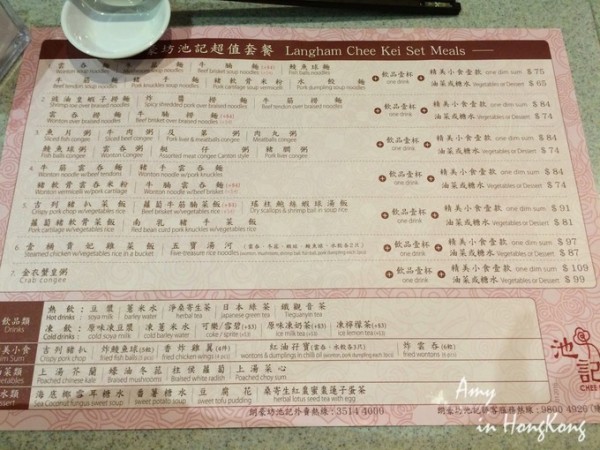 豪坊池記超值套餐 Langham Chee Kei Set Meals
雲吞麵 牛腩麵 鯪魚球麵
Wonton soup noodles Beef brisket soup noodles Fish balls noodles
豬軟骨米粉 水餃麵
Pork cartilage soup vermicelli Pork dumpling soup noodles
飲品壹杯 one drink
精美小食壹款 one dim sum $ 75
油菜或糖水 Vegetables or Dessert $ 65
2. 豉油皇蝦子撈麵 炸醬撈麵 牛筋撈麵
Shrimp roe over braised noodles Spicy shredded pork over braised noodles Beef tendon over braised noodles
雲吞撈麵 牛腩撈麵
Wonton over braised noodles Beef brisket over braised noodles
飲品壹杯 one drink
精美小食壹款 one dim sum $ 84
油菜或糖水 Vegetables or Dessert $ 74
3. 魚片粥 牛肉粥 及第粥 肉丸粥
Sliced fish congee Sliced beef congee Pork liver & meatballs congee Meatballs congee
鯪魚球粥 雲吞粥 艇仔粥 豬膶粥
Fish balls congee Wonton congee Assorted meat congee Canton style Pork liver congee
飲品壹杯 one drink
精美小食壹款 one dim sum $ 84
油菜或糖水 Vegetables or Dessert $ 74
4. 牛筋雲吞麵 豬手雲吞麵
Wonton noodle w/beef tendons Wonton noodle w/pork knuckles
豬軟骨雲吞米粉 牛腩雲吞麵
Wonton vermicelli w/pork cartilage Wonton noodle w/beef brisket
飲品壹杯 one drink
精美小食壹款 one dim sum $ 84
油菜或糖水 Vegetables or Dessert $ 74
5. 吉列豬扒菜飯 蘿蔔牛筋腩菜飯 瑤柱鹹蛋蝦球湯飯
Crispy pork chop w/vegetables rice
蘿蔔豬軟骨菜飯 南乳豬手菜飯
Pork cartilage w/vegetables rice Pork knuckles w/vegetables rice
飲品壹杯 one drink
精美小食壹款 one dim sum $ 91
油菜或糖水 Vegetables or Dessert $ 81
6. 壹桶貴妃雞菜飯 五寶湯河
Steamed chicken w/vegetables rice in a bucket Five-treasure rice noodles
飲品壹杯 one drink
精美小食壹款 one dim sum $ 97
油菜或糖水 Vegetables or Dessert $ 87
7. 金衣蟹皇粥
Crab congee
飲品壹杯 one drink
精美小食壹款 one dim sum $ 109
油菜或糖水 Vegetables or Dessert $ 99
飲品類 Drinks
熱飲: 豆漿 薏米水 淨桑寄生茶 日本綠茶 鐵觀音茶
Hot drinks soya milk barley water herbal tea japanese green tea Tieguanyin tea
凍飲: 凍原味豆漿 凍薏米水 可樂/雪碧(+$3) 原味凍奶茶(+$3) 凍檸檬茶(+$3)
Cold drinks cold soya milk cold barley water coke / sprite ice milk tea ice lemon tea
吉列豬扒 炸鯪魚球 吉香炸雞翼 紅油孖寶 炸雲吞
Crispy pork chop fried fish balls fried chicken wings wontons & dumplings in chilli oil fried wontons
上湯芥蘭 蠔油冬菇 柱侯蘿蔔 上湯菜心
Poached chinese kale Braised mushrooms Braised white radish Poached choy sum
海底椰雪耳糖水 番薯糖水 豆腐花 桑寄生紅棗蜜棗蓮子蛋茶
Sea Coconut fungus sweet soup sweet potato soup sweet tofu pudding herbal lotus seed tea with egg
朗豪坊池記外賣熱線: 3514 4000
池記
CHEE
Amy
in HongKong